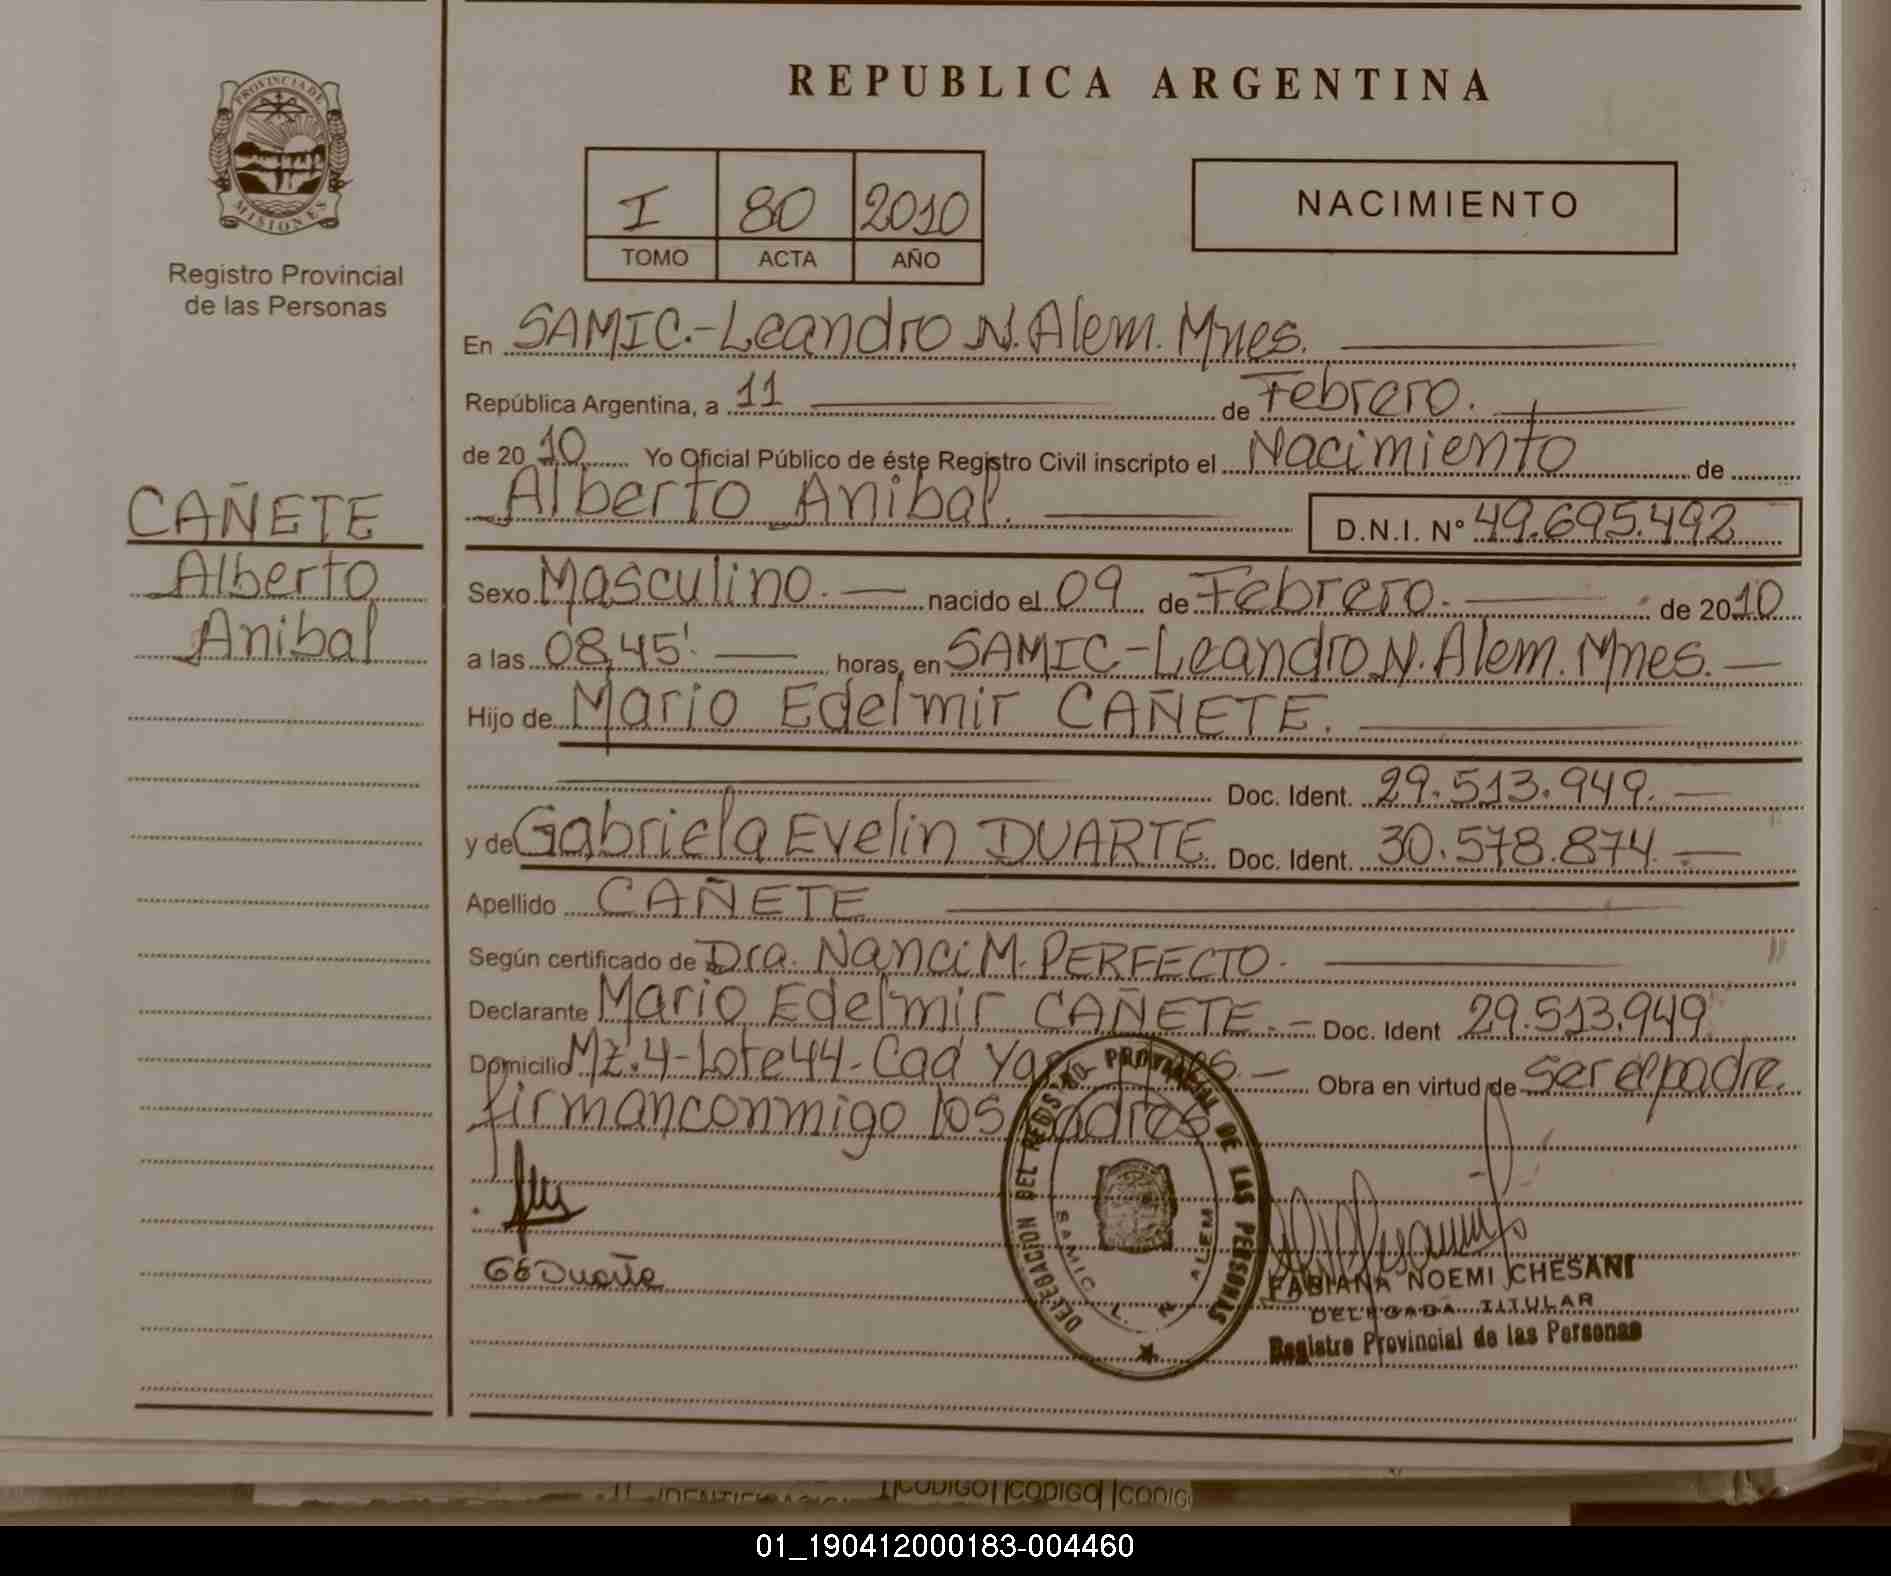 PROVINCIA DE
MISIONES
Registro Provincial
de las Personas
CAÑETE
Alberto
Anibal
REPUBLICA ARGENTINA
I 80 2010
TOMO ACTA AÑO
NACIMIENTO
En SAMIC.-Leandro N. Alem. Mnes.
República Argentina, a 11 de Febrero.
de 2010 Yo Oficial Público de éste Registro Civil inscripto el Nacimiento de
Alberto Anibal. D.N.I. Nº 49.695.492
Sexo Masculino. nacido el 09 de Febrero. de 2010
a las 08,45' horas, en SAMIC-Leandro N. Alem. Mnes.
Hijo de Mario Edelmir CAÑETE.
Doc. Ident. 29.513.949.
y de Gabriela Evelin DUARTE Doc. Ident. 30.578.874.
Apellido CAÑETE
Según certificado de Dra. Nanci M. PERFECTO.
Declarante Mario Edelmir CAÑETE.- Doc. Ident 29.513.949
Domicilio Mz.4-Lote 44- Obra en virtud de ser el padre.
firman conmigo los padres
GEDuarte
DELEGACION DEL REGISTRO PROVINCIAL DE LAS PERSONAS
SAMIC L. N. ALEM
FABIANA NOEMI CHESANI
DELEGADA TITULAR
Registro Provincial de las Personas
CODIGO CODIGO
01_190412000183-004460